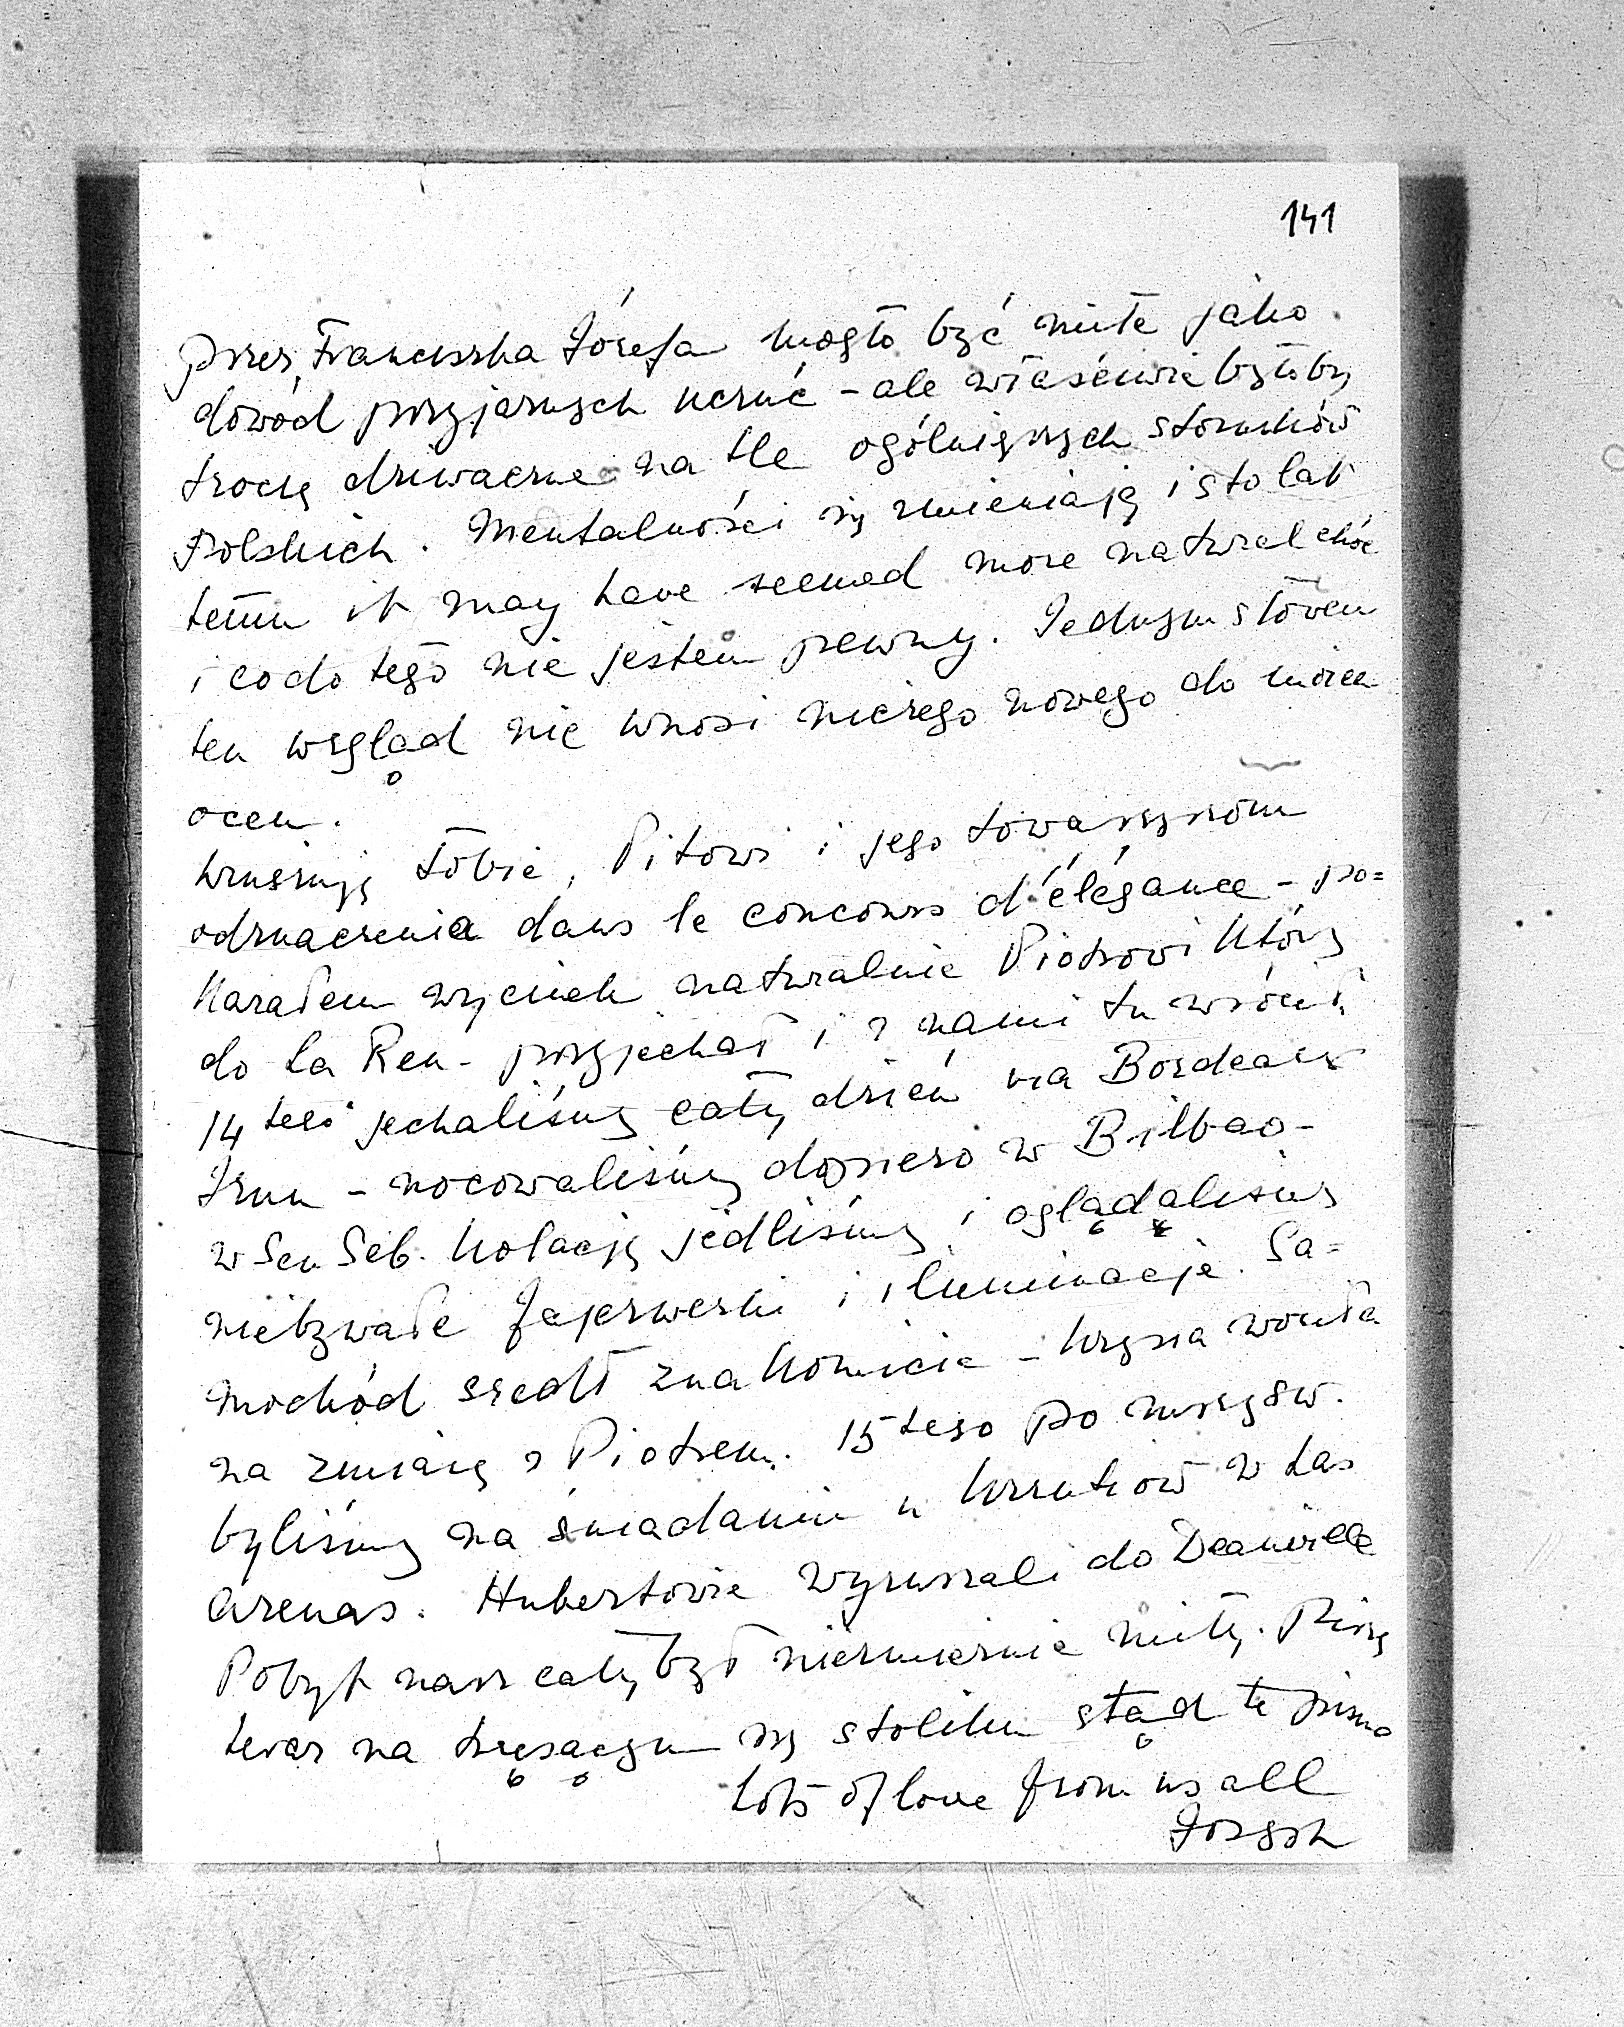 141
przez Franciszka Józefa mogło być miłe jako
dowód przyjaznych uczuć - ale właściwie byłoby
trochę dziwaczne na tle ogólniejszych stosunków
Polskich. Mentalności się zmieniają i sto lat
temu it may have seemed more natural choć
i co do tego nie jestem pewny. Jednym słowem
ten wzgląd nie wnosi niczego nowego do moich
ocen.
Winszuję Tobie, Pitowi i jego towarzyszom
odznaczenia dans le concours d'élégance - po=
kazałem wycinek naturalnie Piotrowi który
do La Ren. przyjechał i z nami tu wrócił
14 tego jechaliśmy cały dzień via Bordeaux
Irun - nocowaliśmy dopiero w Bilbao -
w San Seb. kolację jedliśmy i oglądaliśmy
niebywałe fajerwerki i iluminacje. Sa=
mochód szedł znakomicie - Krysia woziła
na zmianę z Piotrem. 15 tego po mszy św.
byliśmy na śniadaniu u w Las
Arenas. Hubertowie wyruszali do Deauville
Pobyt nasz cały był niezmiernie miły. Piszę
teraz na trzęsącym się stoliku stąd te pismo
Lots of love from us all
Józych